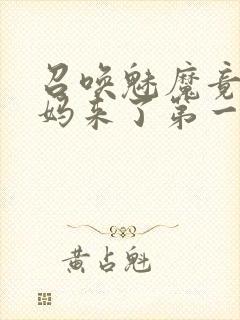 召唤魅魔竟
妈来了第一
黄占魁